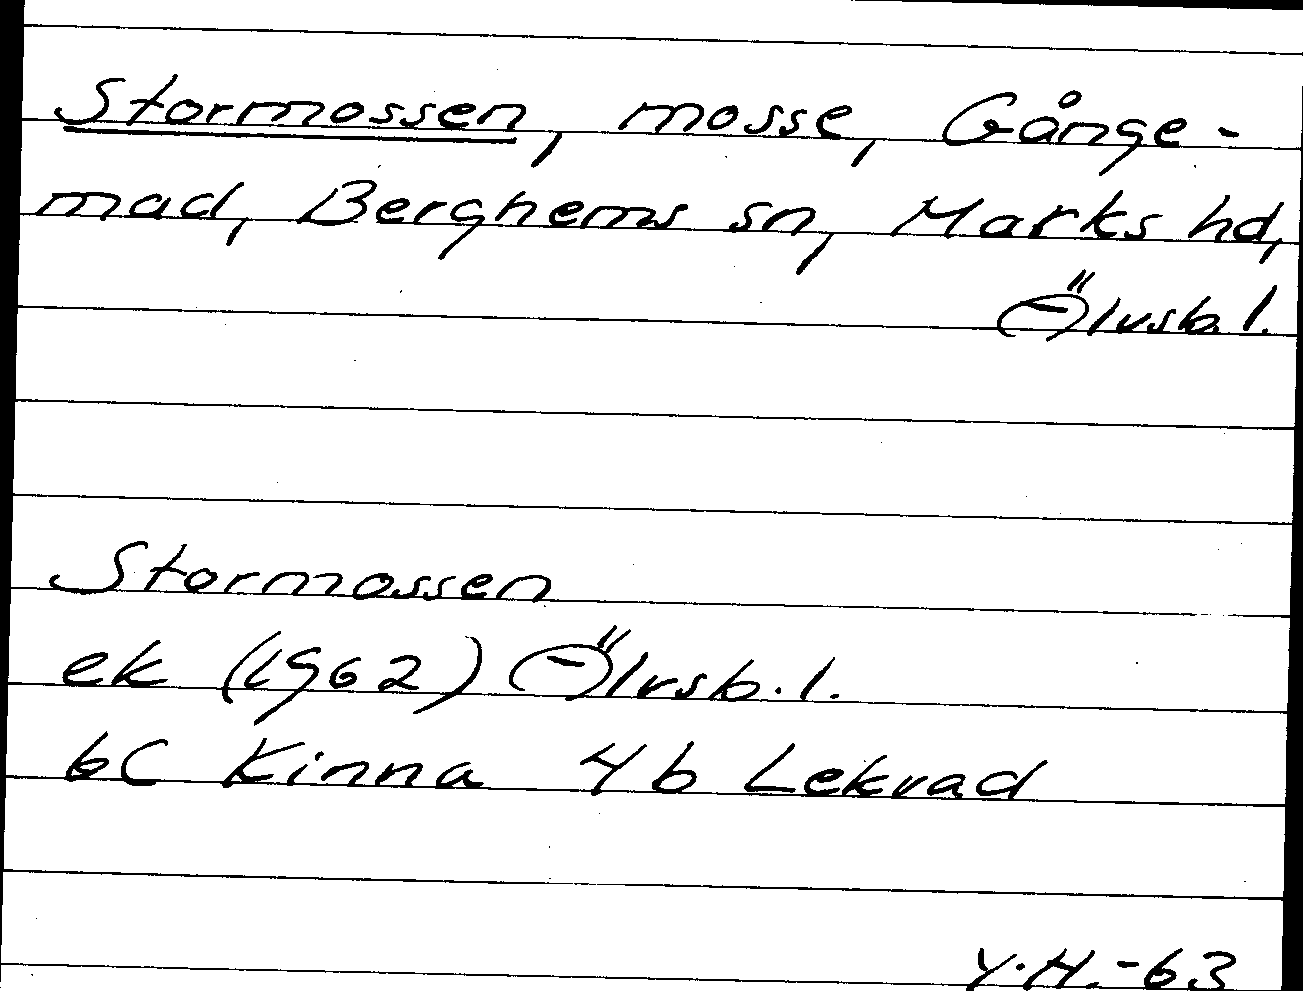 Stormossen, mosse, Gånge-
mad, Berghems sn, Marks hd,
Älvsb. l.
Stormossen
ek (1962) Älvsb. l.
6C Kinna 4b Lekvad
Y.H.-63